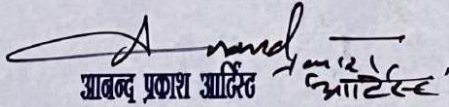 Anand
आनन्द प्रकाश आर्टिस्ट
आर्टिस्ट